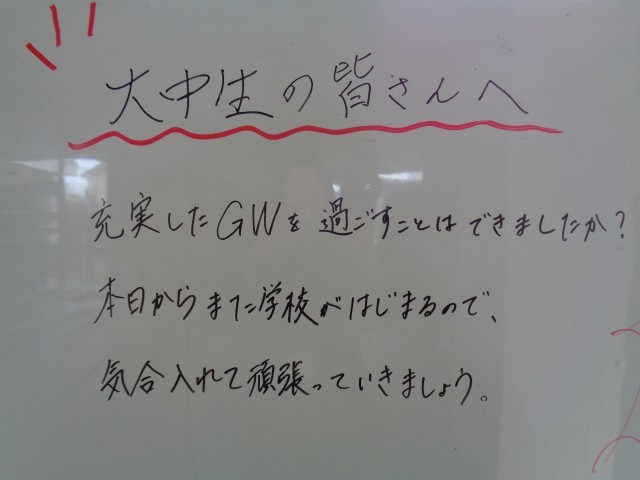 大中生の皆さんへ
充実したGWを過ごすことはできましたか?
本日からまた学校がはじまるので、
気合入れて頑張っていきましょう。